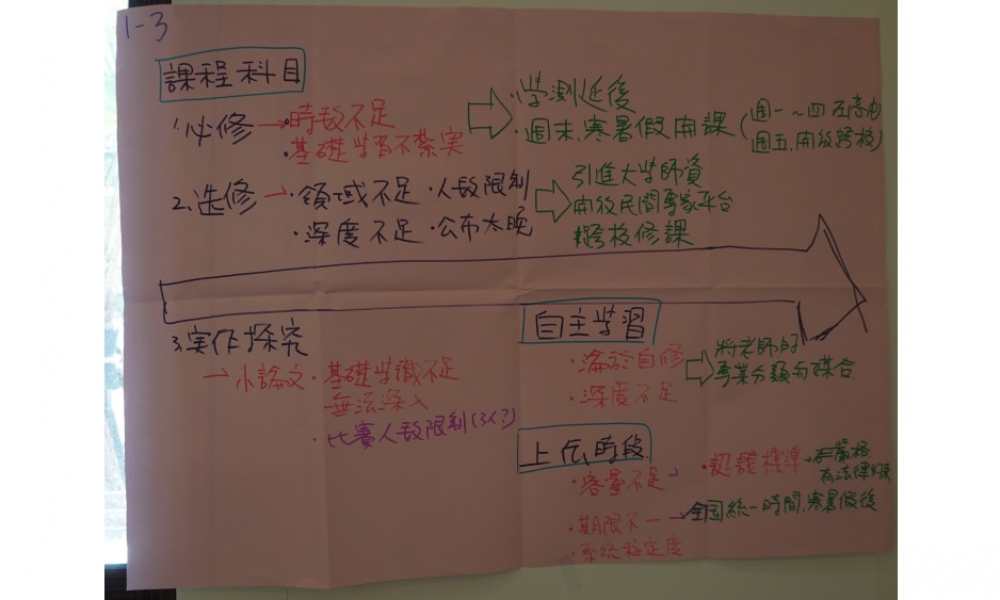 1-3
課程科目
1.必修→•時數不足
•基礎学習不紮実
•学測延後
•週末、寒暑假開課(週一~四在高中
週五、開放跨校)
2.选修→•領域不足•人数限制
•深度不足•公布太晚
引進大学師資
開放民間專家平台
跨校修課
3.実作探究
→小論文•基礎学識不足
無法深入
•比賽人数限制(3人?)
自主学習
•淪於自修
•深度不足
將老師的
專業分類与媒合
上伝時段
•容量不足
•認證標準→
有法律約束
•期限不一→全国統一時間、寒暑假後
•系統穩定度